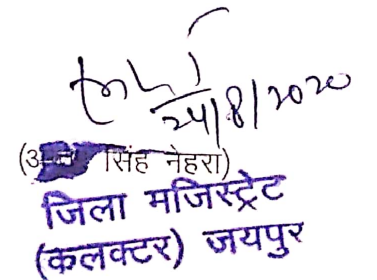 24/8/2020
सिंह नेहरा)
जिला मजिस्ट्रेट
(कलक्टर) जयपुर